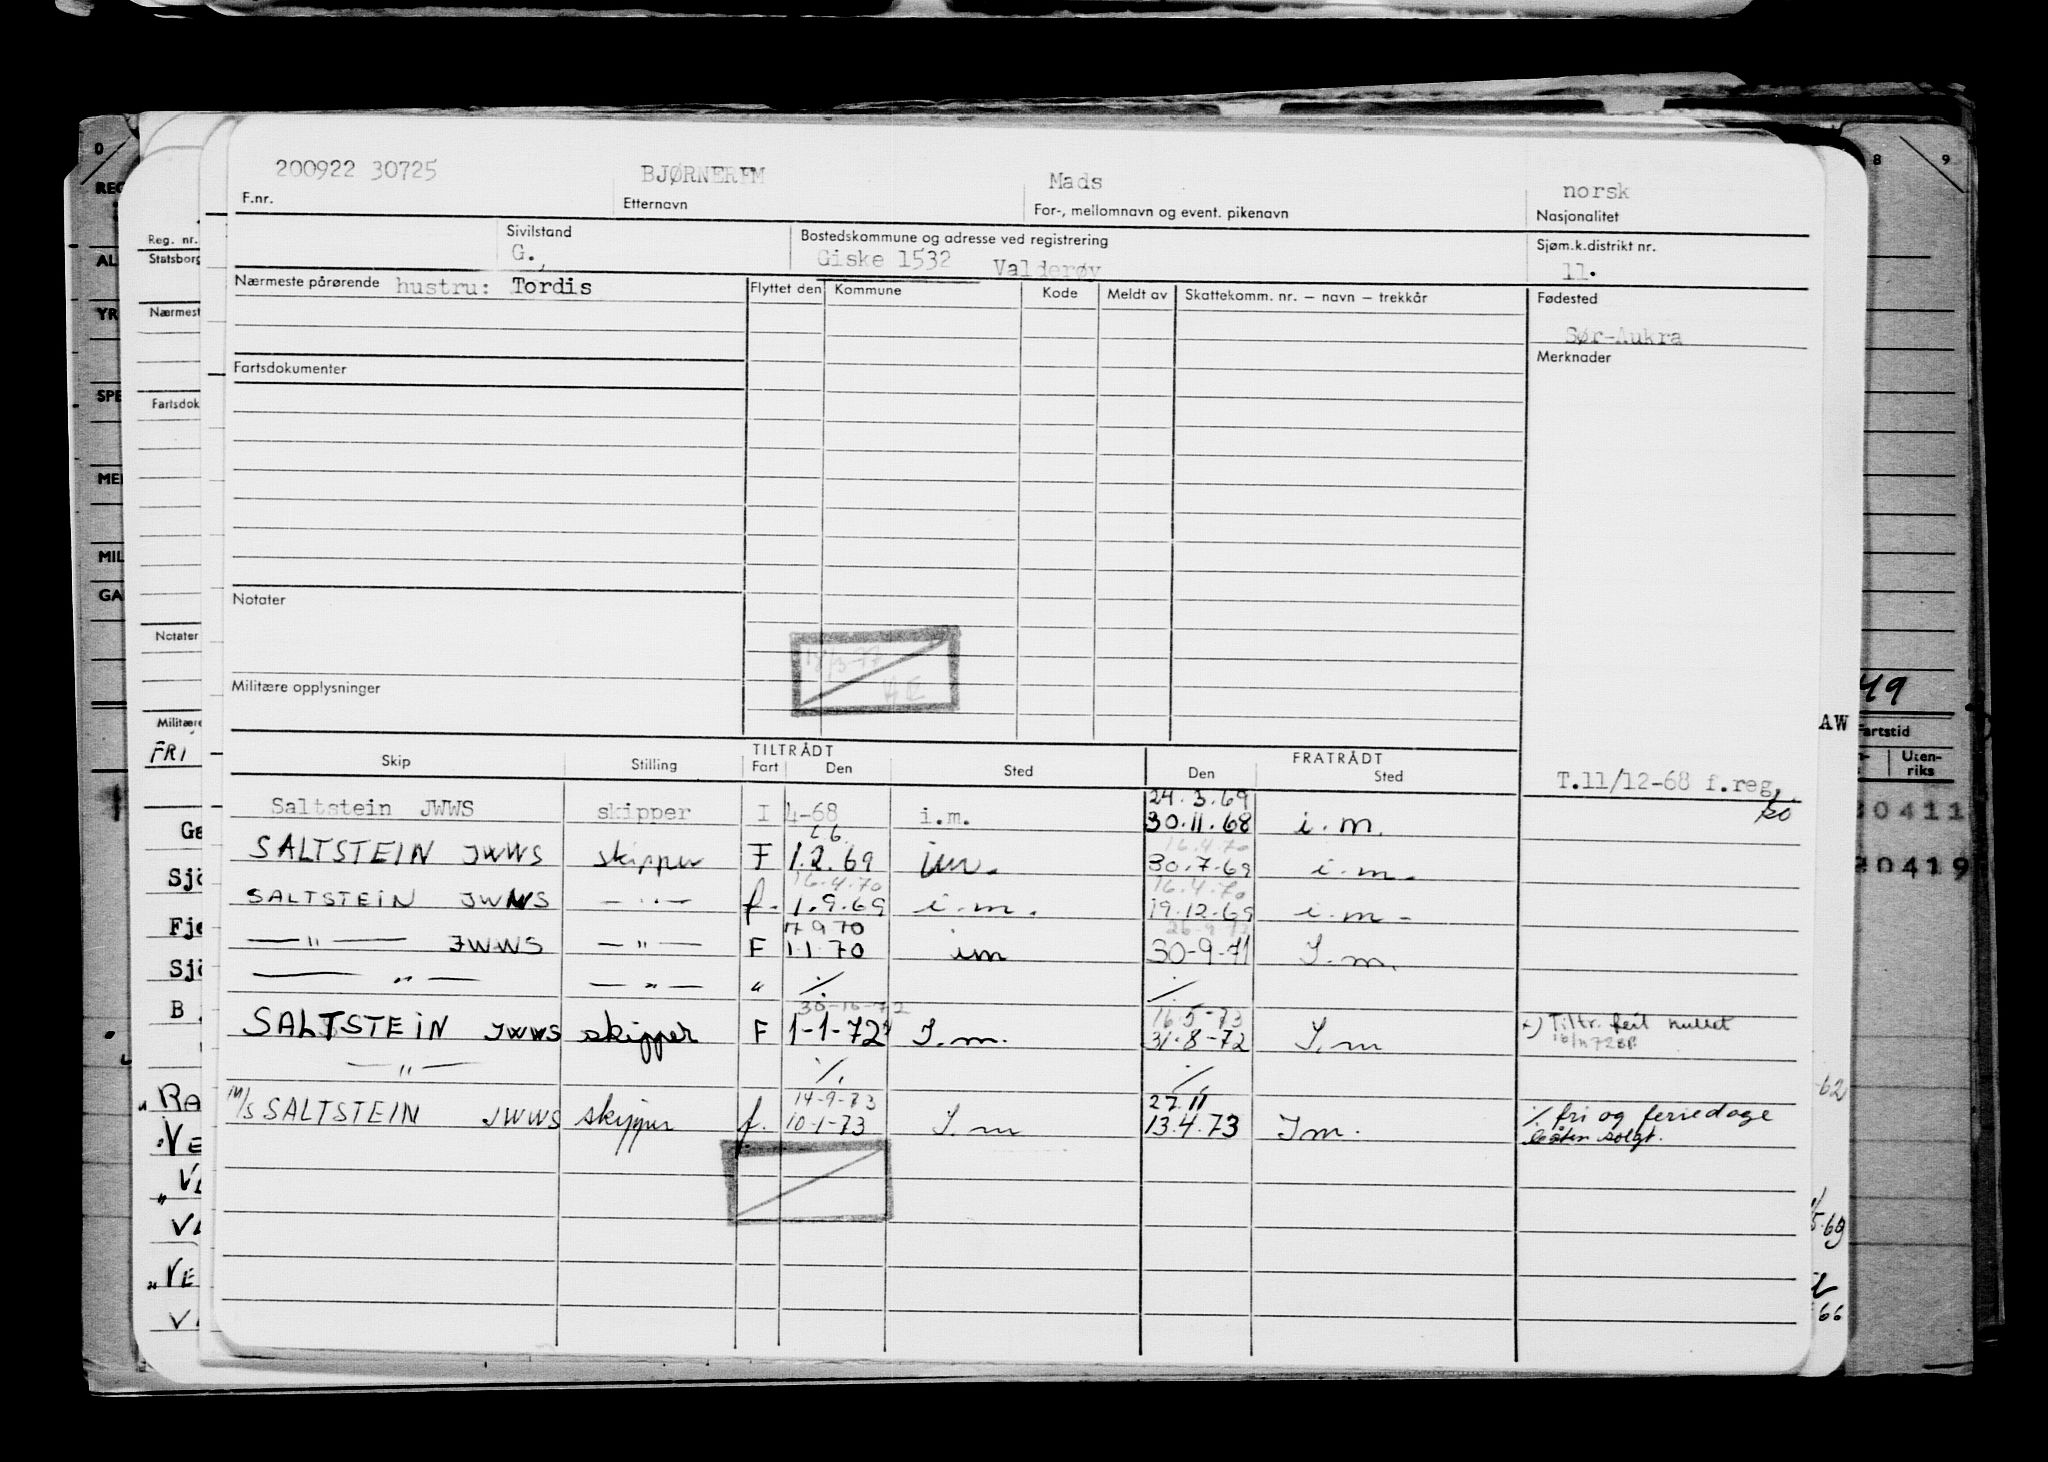 200922 30725 BJØRNEREM Mads norsk
F.nr. Etternavn For-, mellomnavn og event. pikenavn Nasjonalitet
Sivilstand Bostedskommune og adresse ved registrering Sjøm.k.distrikt nr.
G., Giske 1532 Valderøy 11.
Nærmeste pårørende hustru: Tordis Flyttet den Kommune Kode Meldt av Skattekomm. nr. — navn — trekkår Fødested
Sør-Aukra
Fartsdokumenter Merknader
Notater
18/3-77
Militære opplysninger
Skip Stilling TILTRÅDT Fart Den Sted FRATRÅDT Den Sted
T.11/12-68 f.reg.
24.3.69
Saltstein JWWS skipper I 4-68 i.m. 30.11.68 i.m.
16.4.70
SALTSTEIN JWWS skipper F 1.2.69 im. 30.7.69 i.m.
16.4.70 16.4.70
SALTSTEIN JWWS —"— f. 1.9.69 i.m. 19.12.69 i.m.
7 9 70
—"— JWWS —"— F 1.1.70 im 30-9-71 I.m.
—"— —"— " ./. ./.
30-10-72 16.5-73
SALTSTEIN JWWS skipper F 1-1-72 I.m. 31.8-72 I.m x) Tiltr. feil nullet
—"— ./. ./.
14-9-73 27.11
M/S SALTSTEIN JWWS skipper f. 10-1-73 I.m 13.4.73 Im. ./. fri og feriedage
båten solgt.
0
REG
AL
YR
SPE
MEI
MIL
GA
Reg. nr.
Statsborg
Nærmest
Fartsdok
Notater
Militære
FRI
Ga
Sjö
Fje
Sjö
B
RA
VE
VE
8 9
49
AW
Fartstid
Uten-
riks
0411
0419
-62
5.69
66